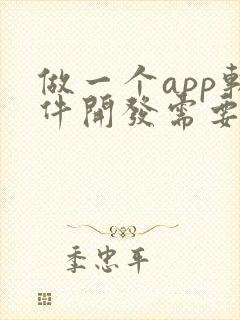 做一个app軟
件開發需要
季忠平